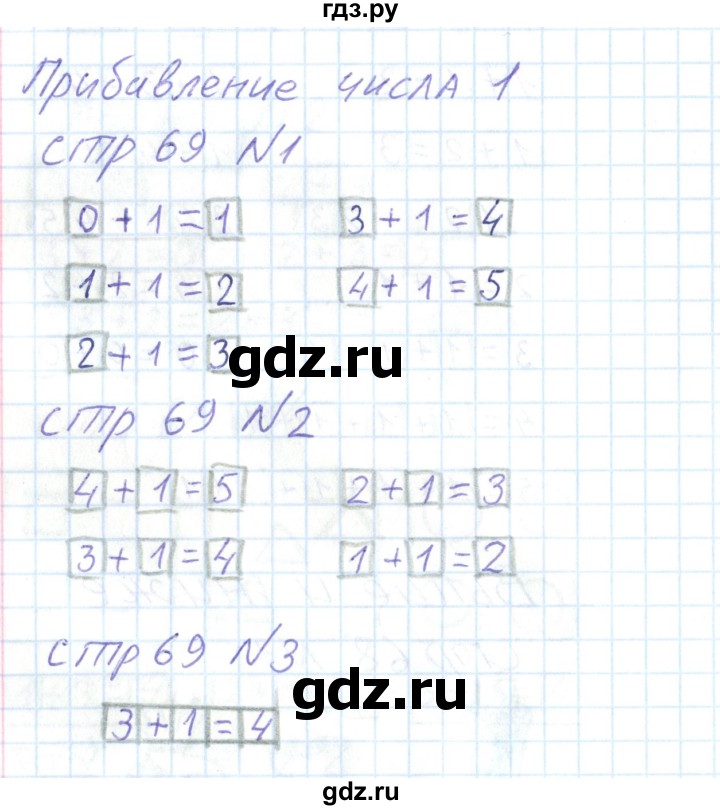 гдз.ру
Прибавление числа 1
стр 69 №1
0 + 1 = 1 3 + 1 = 4
1 + 1 = 2 4 + 1 = 5
2 + 1 = 3
gdz.ru
стр 69 №2
4 + 1 = 5 2 + 1 = 3
3 + 1 = 4 1 + 1 = 2
стр 69 №3
gdz.ru
3 + 1 = 4
gdz.ru